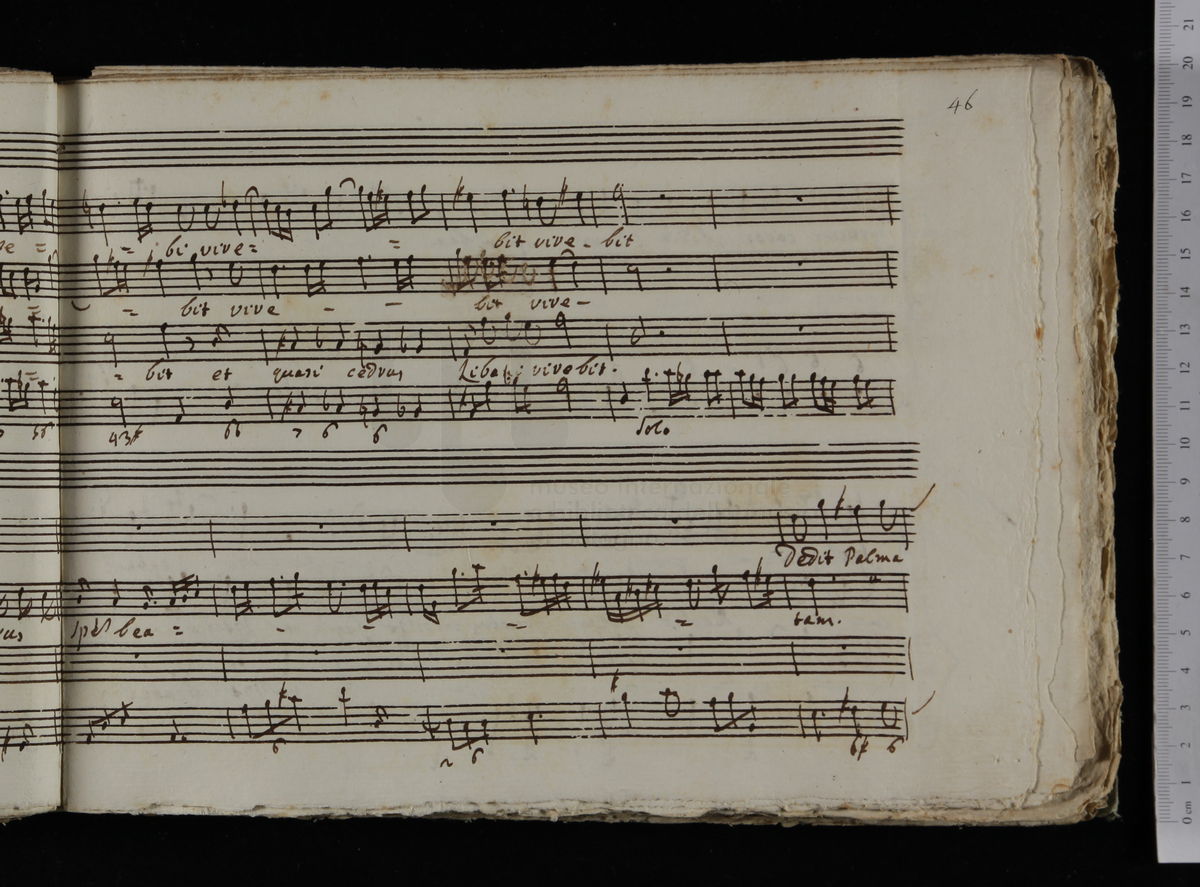 46
= bi vive = = bit vive - bit
= bit vive - - bit vive -
= bit et quasi cedrus Libani vivebit.
43# 66 7 6 6 Solo
museo internazionale
Dedit Palma
spes bea = - = - = tam.
6
6
6# 6
0 cm 1 2 3 4 5 6 7 8 9 10 11 12 13 14 15 16 17 18 19 20 21